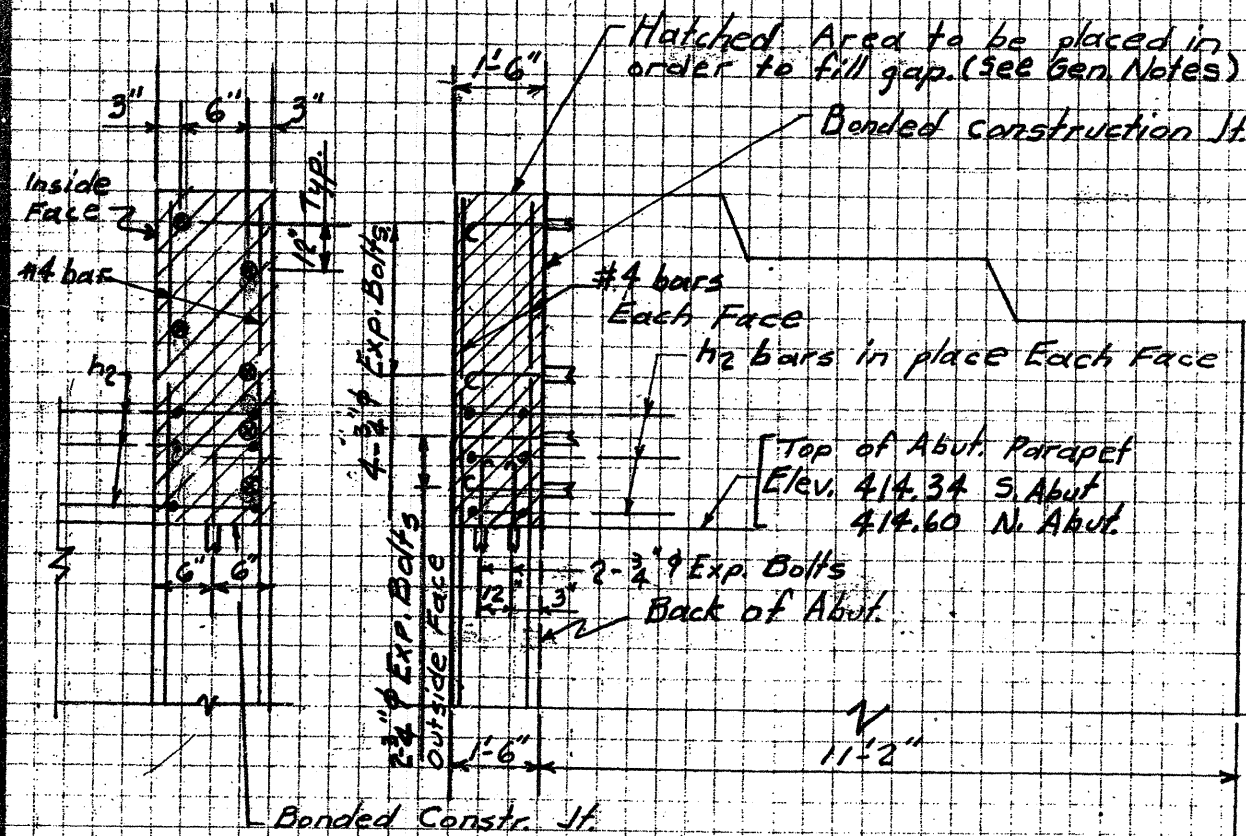 Hatched Area to be placed in
order to fill gap. (See Gen. Notes)
1'-6"
Bonded construction Jt.
3" 6" 3"
Inside
Face
12" Typ.
#4 bar
4-3/4"φ Exp. Bolts
#4 bars
Each Face
h2 bars in place Each Face
h2
Top of Abut. Parapet
Elev. 414.34 S. Abut
414.60 N. Abut.
6" 6"
2-3/4"φ Exp. Bolts
12" 3"
Back of Abut.
2-3/4"φ Exp. Bolts
Outside Face
1'-6"
11'-2"
Bonded Constr. Jt.